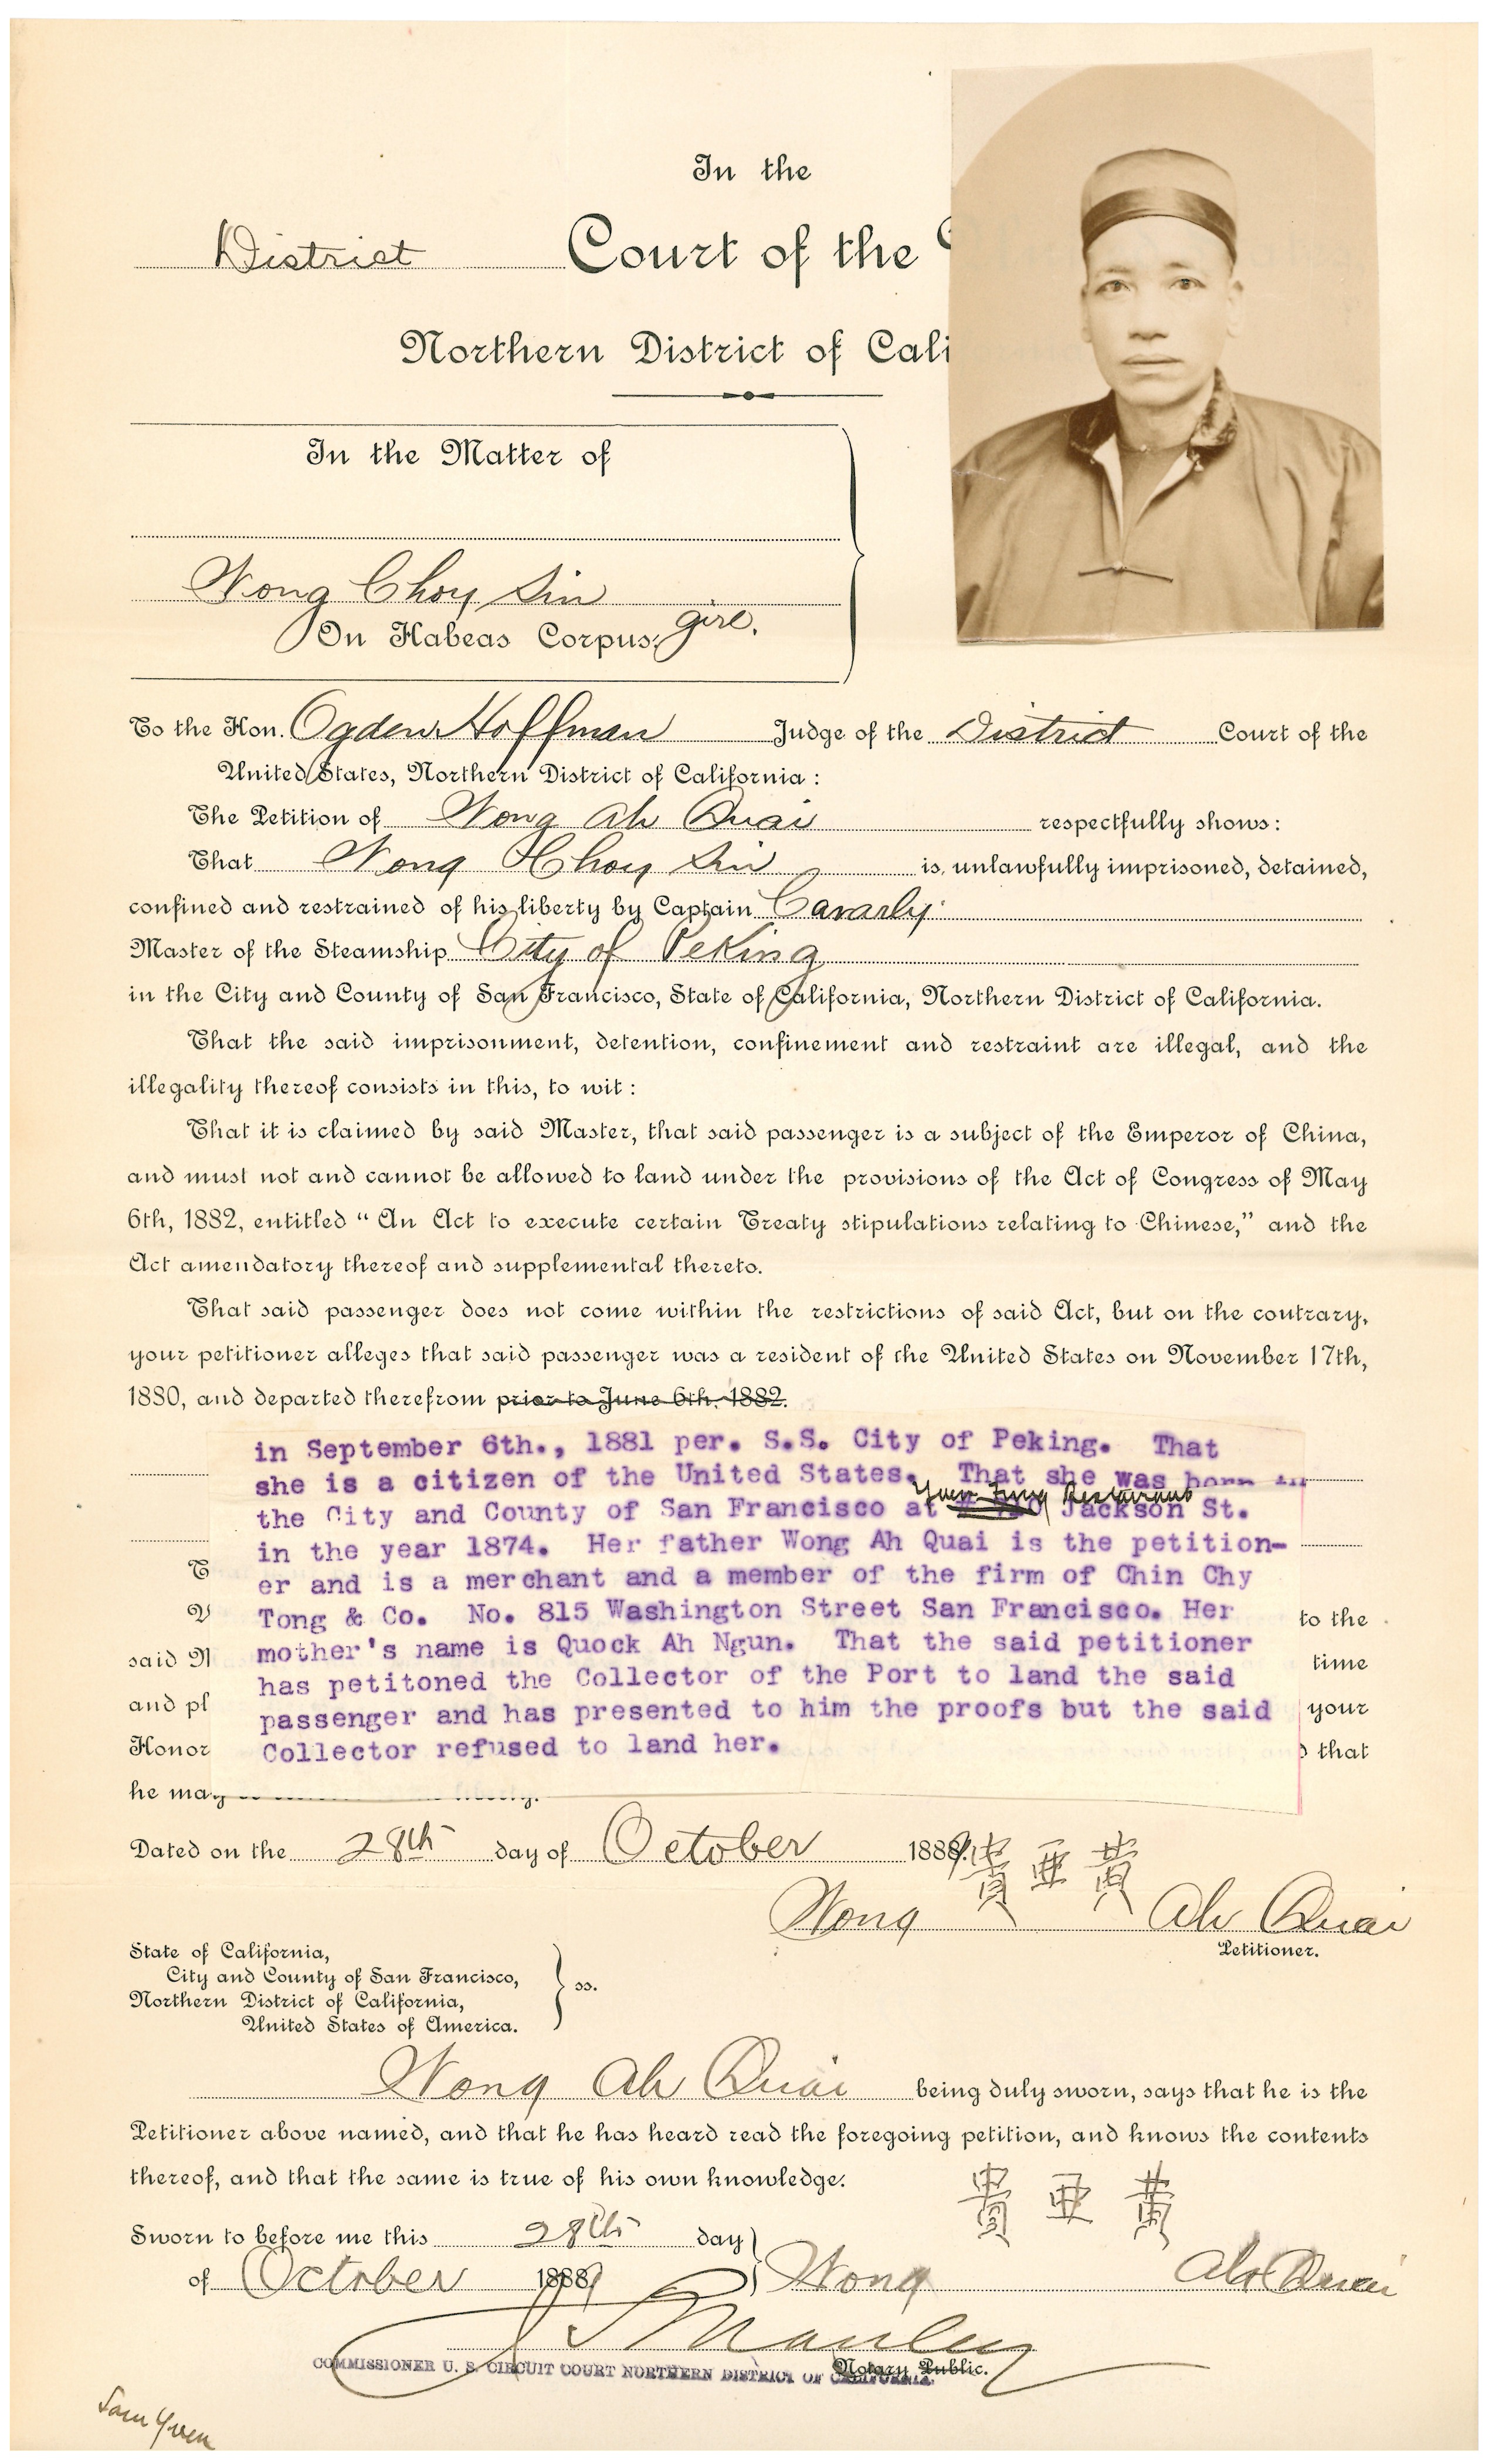 In the
District Court of the
Northern District of Cali
In the Matter of
Wong Choy Sin
On Habeas Corpus. girl.
To the Hon. Ogden Hoffman Judge of the District Court of the
United States, Northern District of California :
The Petition of Wong Ah Quai respectfully shows:
That Wong Choy Sin is unlawfully imprisoned, detained,
confined and restrained of his liberty by Captain Cavarly
Master of the Steamship City of Peking
in the City and County of San Francisco, State of California, Northern District of California.
That the said imprisonment, detention, confinement and restraint are illegal, and the
illegality thereof consists in this, to wit :
That it is claimed by said Master, that said passenger is a subject of the Emperor of China,
and must not and cannot be allowed to land under the provisions of the Act of Congress of May
6th, 1882, entitled “ An Act to execute certain Treaty stipulations relating to Chinese,” and the
Act amendatory thereof and supplemental thereto.
That said passenger does not come within the restrictions of said Act, but on the contrary,
your petitioner alleges that said passenger was a resident of the United States on November 17th,
1880, and departed therefrom prior to June 6th, 1882.
in September 6th., 1881 per. S.S. City of Peking. That
she is a citizen of the United States. That she was born in
Restaurant
the City and County of San Francisco at Jackson St.
in the year 1874. Her father Wong Ah Quai is the petition-
er and is a merchant and a member of the firm of Chin Chy
Tong & Co. No. 815 Washington Street San Francisco. Her to the
said mother's name is Quock Ah Ngun. That the said petitioner time
and pl has petitoned the Collector of the Port to land the said
passenger and has presented to him the proofs but the said your
Honor Collector refused to land her. that
he may
Dated on the 28th day of October 1889. 貴亞黃
Wong Ah Quai
Petitioner.
State of California,
City and County of San Francisco,
Northern District of California,
United States of America.
ss.
Wong Ah Quai being duly sworn, says that he is the
Petitioner above named, and that he has heard read the foregoing petition, and knows the contents
thereof, and that the same is true of his own knowledge.
貴亞黃
Sworn to before me this 28th day
of October 1889 Wong Ah Quai
Manley
Notary Public.
COMMISSIONER U. S. CIRCUIT COURT NORTHERN DISTRICT OF CALIFORNIA.
Sam Yuen